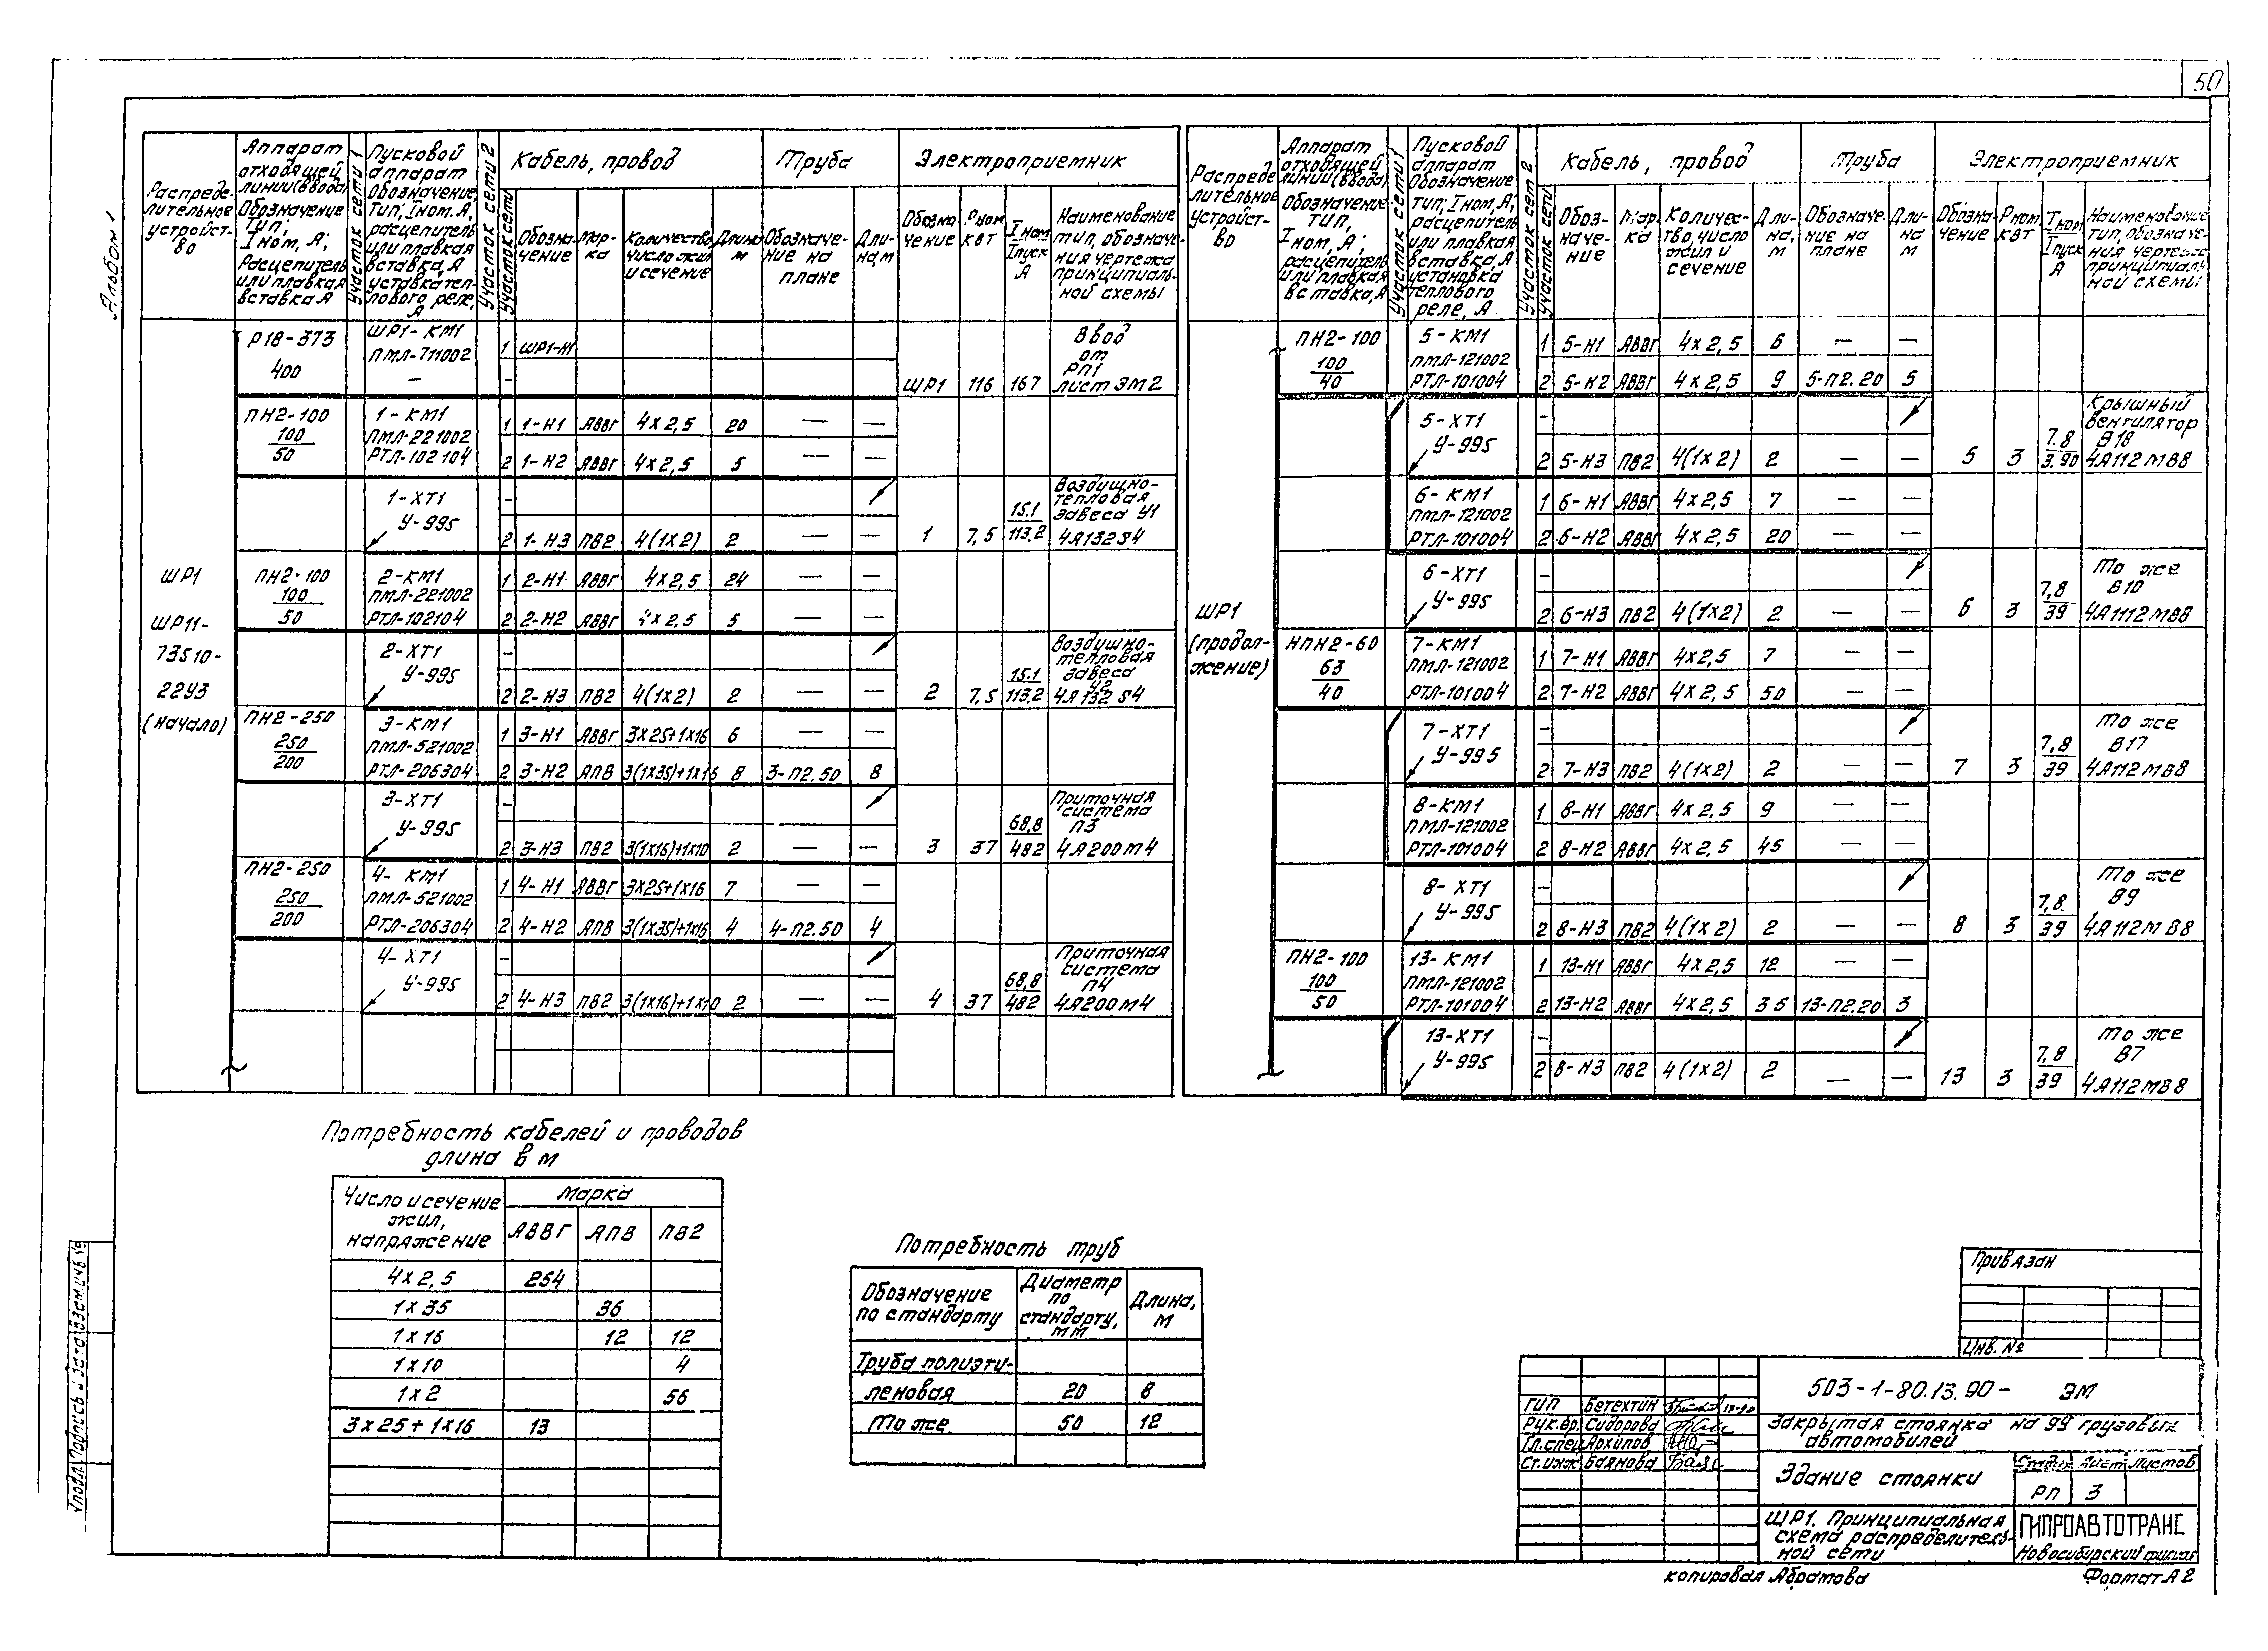 50
Альбом 1
Распреде-
лительное
устройст-
во
Аппарат
отходящей
линии (ввода)
Обозначение
Тип;
Iном, А;
Расцепитель
или плавкая
вставка А
Участок сети 1
Пусковой
аппарат
Обозначение,
Тип; Iном, А;
расцепитель
или плавкая
вставка, А
уставка теп-
лового реле,
А
Участок сети 2
Участок сети
Кабель, провод
Обозна-
чение
Мар-
ка
Количество,
число жил
и сечение
Длина
м
Труба
Обозначе-
ние на
плане
Дли-
на, м
Электроприемник
Обозна-
чение
Рном
кВт
Iном
Iпуск
А
Наименование
тип, обозначе-
ния чертежа
принципиаль-
ной схемы
ШР1
ШР11-
73510-
22У3
(начало)
Р18-373
400
ШР1-КМ1
ПМЛ-711002
—
1 ШР1-Н1
-
ШР1 116 167
Ввод
от
РП1
лист ЭМ2
ПН2-100
100
50
1-КМ1
ПМЛ-221002
РТЛ-102104
1 1-Н1 АВВГ 4х2,5 20 — —
2 1-Н2 АВВГ 4х2,5 5 — —
1-ХТ1
У-995
-
2 1-Н3 ПВ2 4(1х2) 2 — —
1 7,5 15.1
113.2
Воздушно-
тепловая
завеса У1
4А132S4
ПН2-100
100
50
2-КМ1
ПМЛ-221002
РТЛ-102104
1 2-Н1 АВВГ 4х2,5 24 — —
2 2-Н2 АВВГ 4х2,5 5 — —
2-ХТ1
У-995
-
2 2-Н3 ПВ2 4(1х2) 2 — —
2 7,5 15.1
113.2
Воздушно-
тепловая
завеса
У2
4А132S4
ПН2-250
250
200
3-КМ1
ПМЛ-521002
РТЛ-206304
1 3-Н1 АВВГ 3х25+1х16 6 — —
2 3-Н2 АПВ 3(1х35)+1х16 8 3-П2.50 8
3-ХТ1
У-995
-
2 3-Н3 ПВ2 3(1х16)+1х10 2 — —
3 37 68,8
482
Приточная
система
П3
4А200М4
ПН2-250
250
200
4-КМ1
ПМЛ-521002
РТЛ-206304
1 4-Н1 АВВГ 3х25+1х16 7 — —
2 4-Н2 АПВ 3(1х35)+1х16 4 4-П2.50 4
4-ХТ1
У-995
-
2 4-Н3 ПВ2 3(1х16)+1х10 2 — —
4 37 68,8
482
Приточная
система
П4
4А200М4
Распреде
лительное
устройст-
во
Аппарат
отходящей
линии (ввода)
Обозначение
Тип,
Iном, А;
расцепитель
или плавкая
вставка, А
Участок сети 1
Пусковой
аппарат
Обозначение
Тип; Iном, А;
расцепитель
или плавкая
вставка, А
установка
теплового
реле, А
Участок сет 2
Участок сети
Кабель, провод
Обоз-
наче-
ние
Мар-
ка
Количес-
тво, число
жил и
сечение
Дли-
на,
м
Труба
Обозначе-
ние на
плане
Дли-
на
м
Электроприемник
Обозна-
чение
Рном
кВт
Iном
Iпуск
А
Наименование
тип, обозначе-
ния чертежа
принципиаль
ной схемы
ШР1
(продол-
жение)
ПН2-100
100
40
5-КМ1
ПМЛ-121002
РТЛ-101004
1 5-Н1 АВВГ 4х2,5 6 — —
2 5-Н2 АВВГ 4х2,5 9 5-П2.20 5
5-ХТ1
У-995
-
2 5-Н3 ПВ2 4(1х2) 2 — —
5 3 7.8
3.90
Крышный
вентилятор
В18
4А112МВ8
6-КМ1
ПМЛ-121002
РТЛ-101004
1 6-Н1 АВВГ 4х2,5 7 — —
2 6-Н2 АВВГ 4х2,5 20 — —
6-ХТ1
У-995
-
2 6-Н3 ПВ2 4(1х2) 2 — —
6 3 7,8
39
То же
В10
4А1112МВ8
НПН2-60
63
40
7-КМ1
ПМЛ-121002
РТЛ-101004
1 7-Н1 АВВГ 4х2,5 7 — —
2 7-Н2 АВВГ 4х2,5 50 — —
7-ХТ1
У-995
-
2 7-Н3 ПВ2 4(1х2) 2 — —
7 3 7,8
39
То же
В17
4А112МВ8
8-КМ1
ПМЛ-121002
РТЛ-101004
1 8-Н1 АВВГ 4х2,5 9 — —
2 8-Н2 АВВГ 4х2,5 45 — —
8-ХТ1
У-995
-
2 8-Н3 ПВ2 4(1х2) 2 — —
8 3 7,8
39
То же
В9
4А112МВ8
ПН2-100
100
50
13-КМ1
ПМЛ-121002
РТЛ-101004
1 13-Н1 АВВГ 4х2,5 12 — —
2 13-Н2 АВВГ 4х2,5 35 13-П2.20 3
13-ХТ1
У-995
-
2 8-Н3 ПВ2 4(1х2) 2 — —
13 3 7,8
39
То же
В7
4А112МВ8
Потребность кабелей и проводов
длина в м
Число и сечение
жил,
напряжение
Марка
АВВГ АПВ ПВ2
4х2,5 254
1х35 36
1х16 12 12
1х10 4
1х2 56
3х25+1х16 13
Потребность труб
Обозначение
по стандарту
Диаметр
по
стандарту,
мм
Длина,
м
Труба полиэти-
леновая 20 8
То же 50 12
Привязан
Инв. №
ГИП Бетехтин IX-90
Рук.бр. Сидорова
Гл.спец Архипов
Ст.инж Баянова
503-1-80.13.90- ЭМ
Закрытая стоянка на 99 грузовых
автомобилей
Здание стоянки
Стадия Лист Листов
РП 3
ШР1. Принципиальная
схема распределитель-
ной сети
ГИПРОАВТОТРАНС
Новосибирский филиал
копировал Абратова
Формат А2